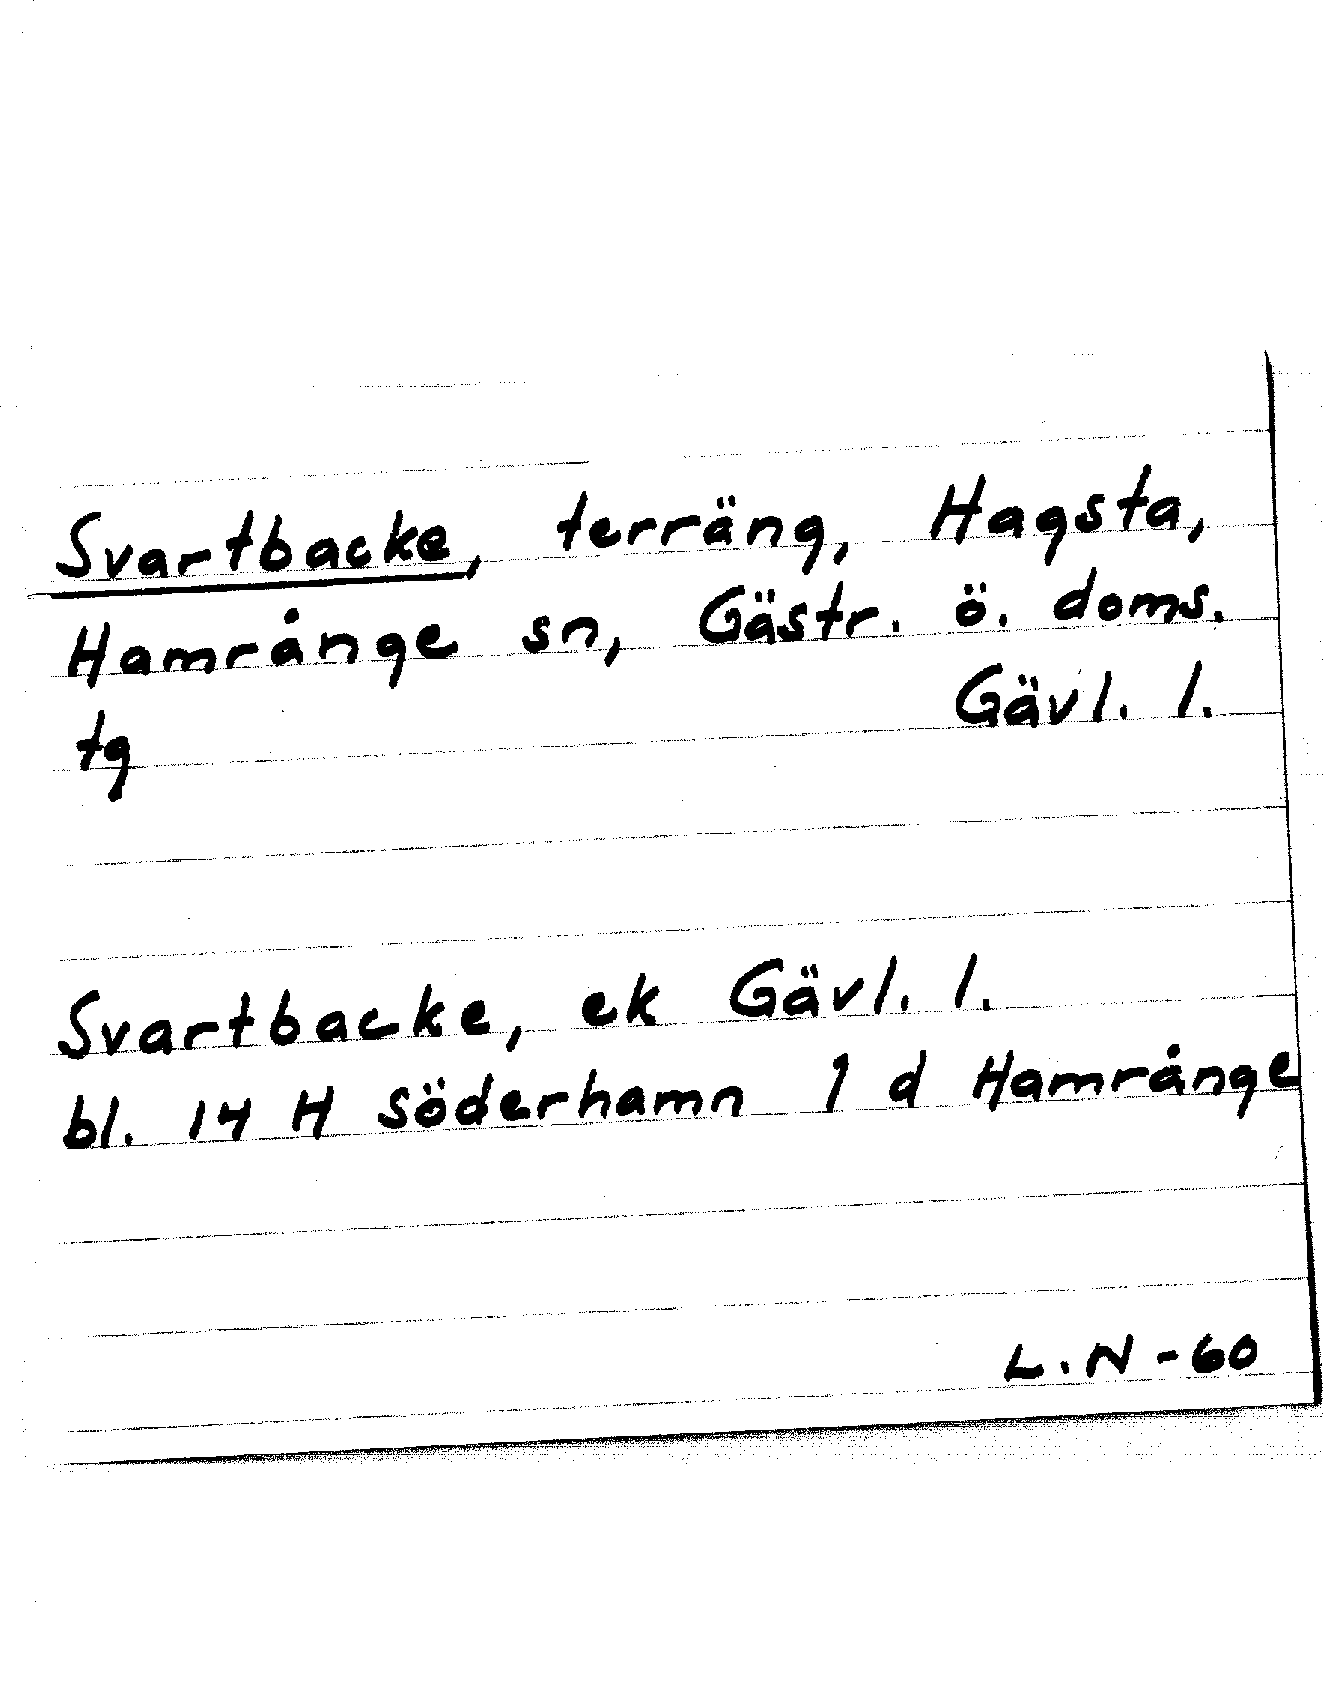 Svartbacke, terräng, Hagsta,
Hamrånge sn, Gästr. ö. doms.
tg Gävl. l.
Svartbacke, ek Gävl. l.
bl. 14 H Söderhamn 1 d Hamrånge
L.N -60